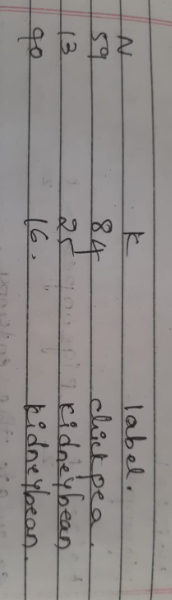 N K label.
59 84 chickpea.
13 25 kidneybean
90 16. kidneybean.